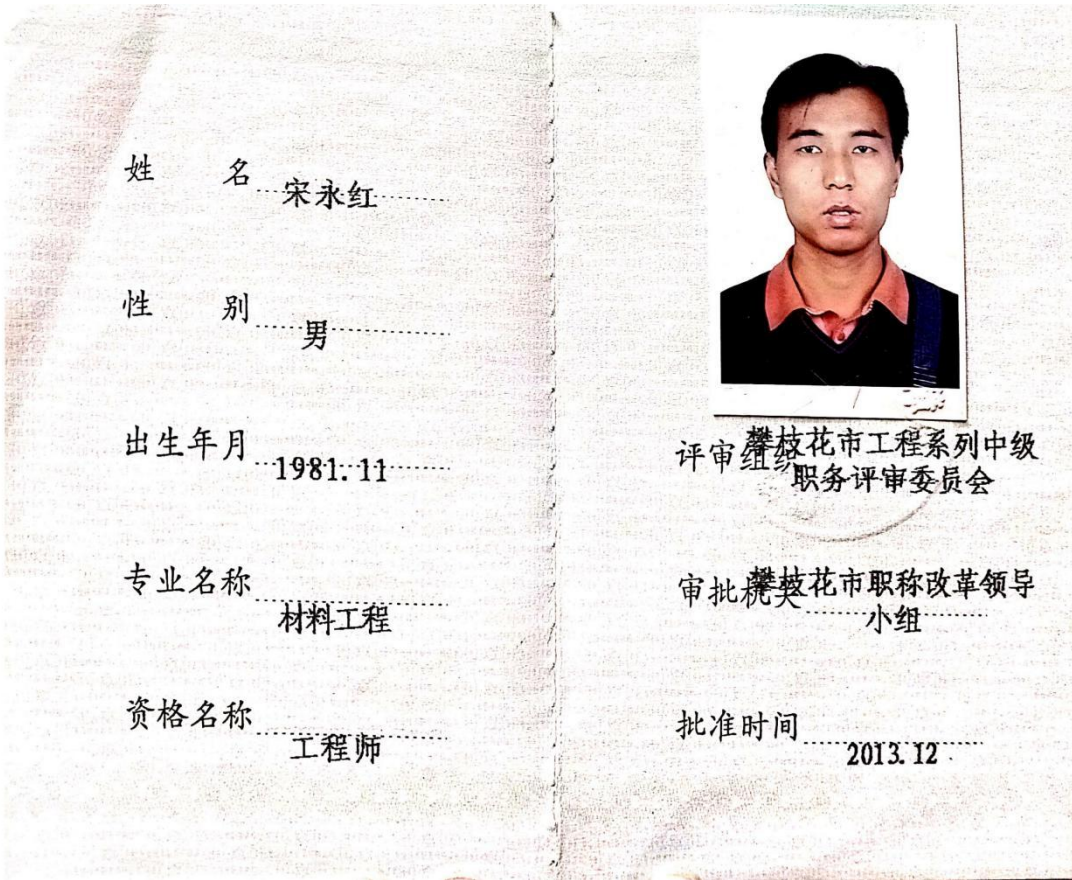 姓名 宋永红
性别 男
出生年月 1981.11
专业名称 材料工程
资格名称 工程师
评审组织 攀枝花市工程系列中级
职务评审委员会
审批机关 攀枝花市职称改革领导
小组
批准时间 2013.12